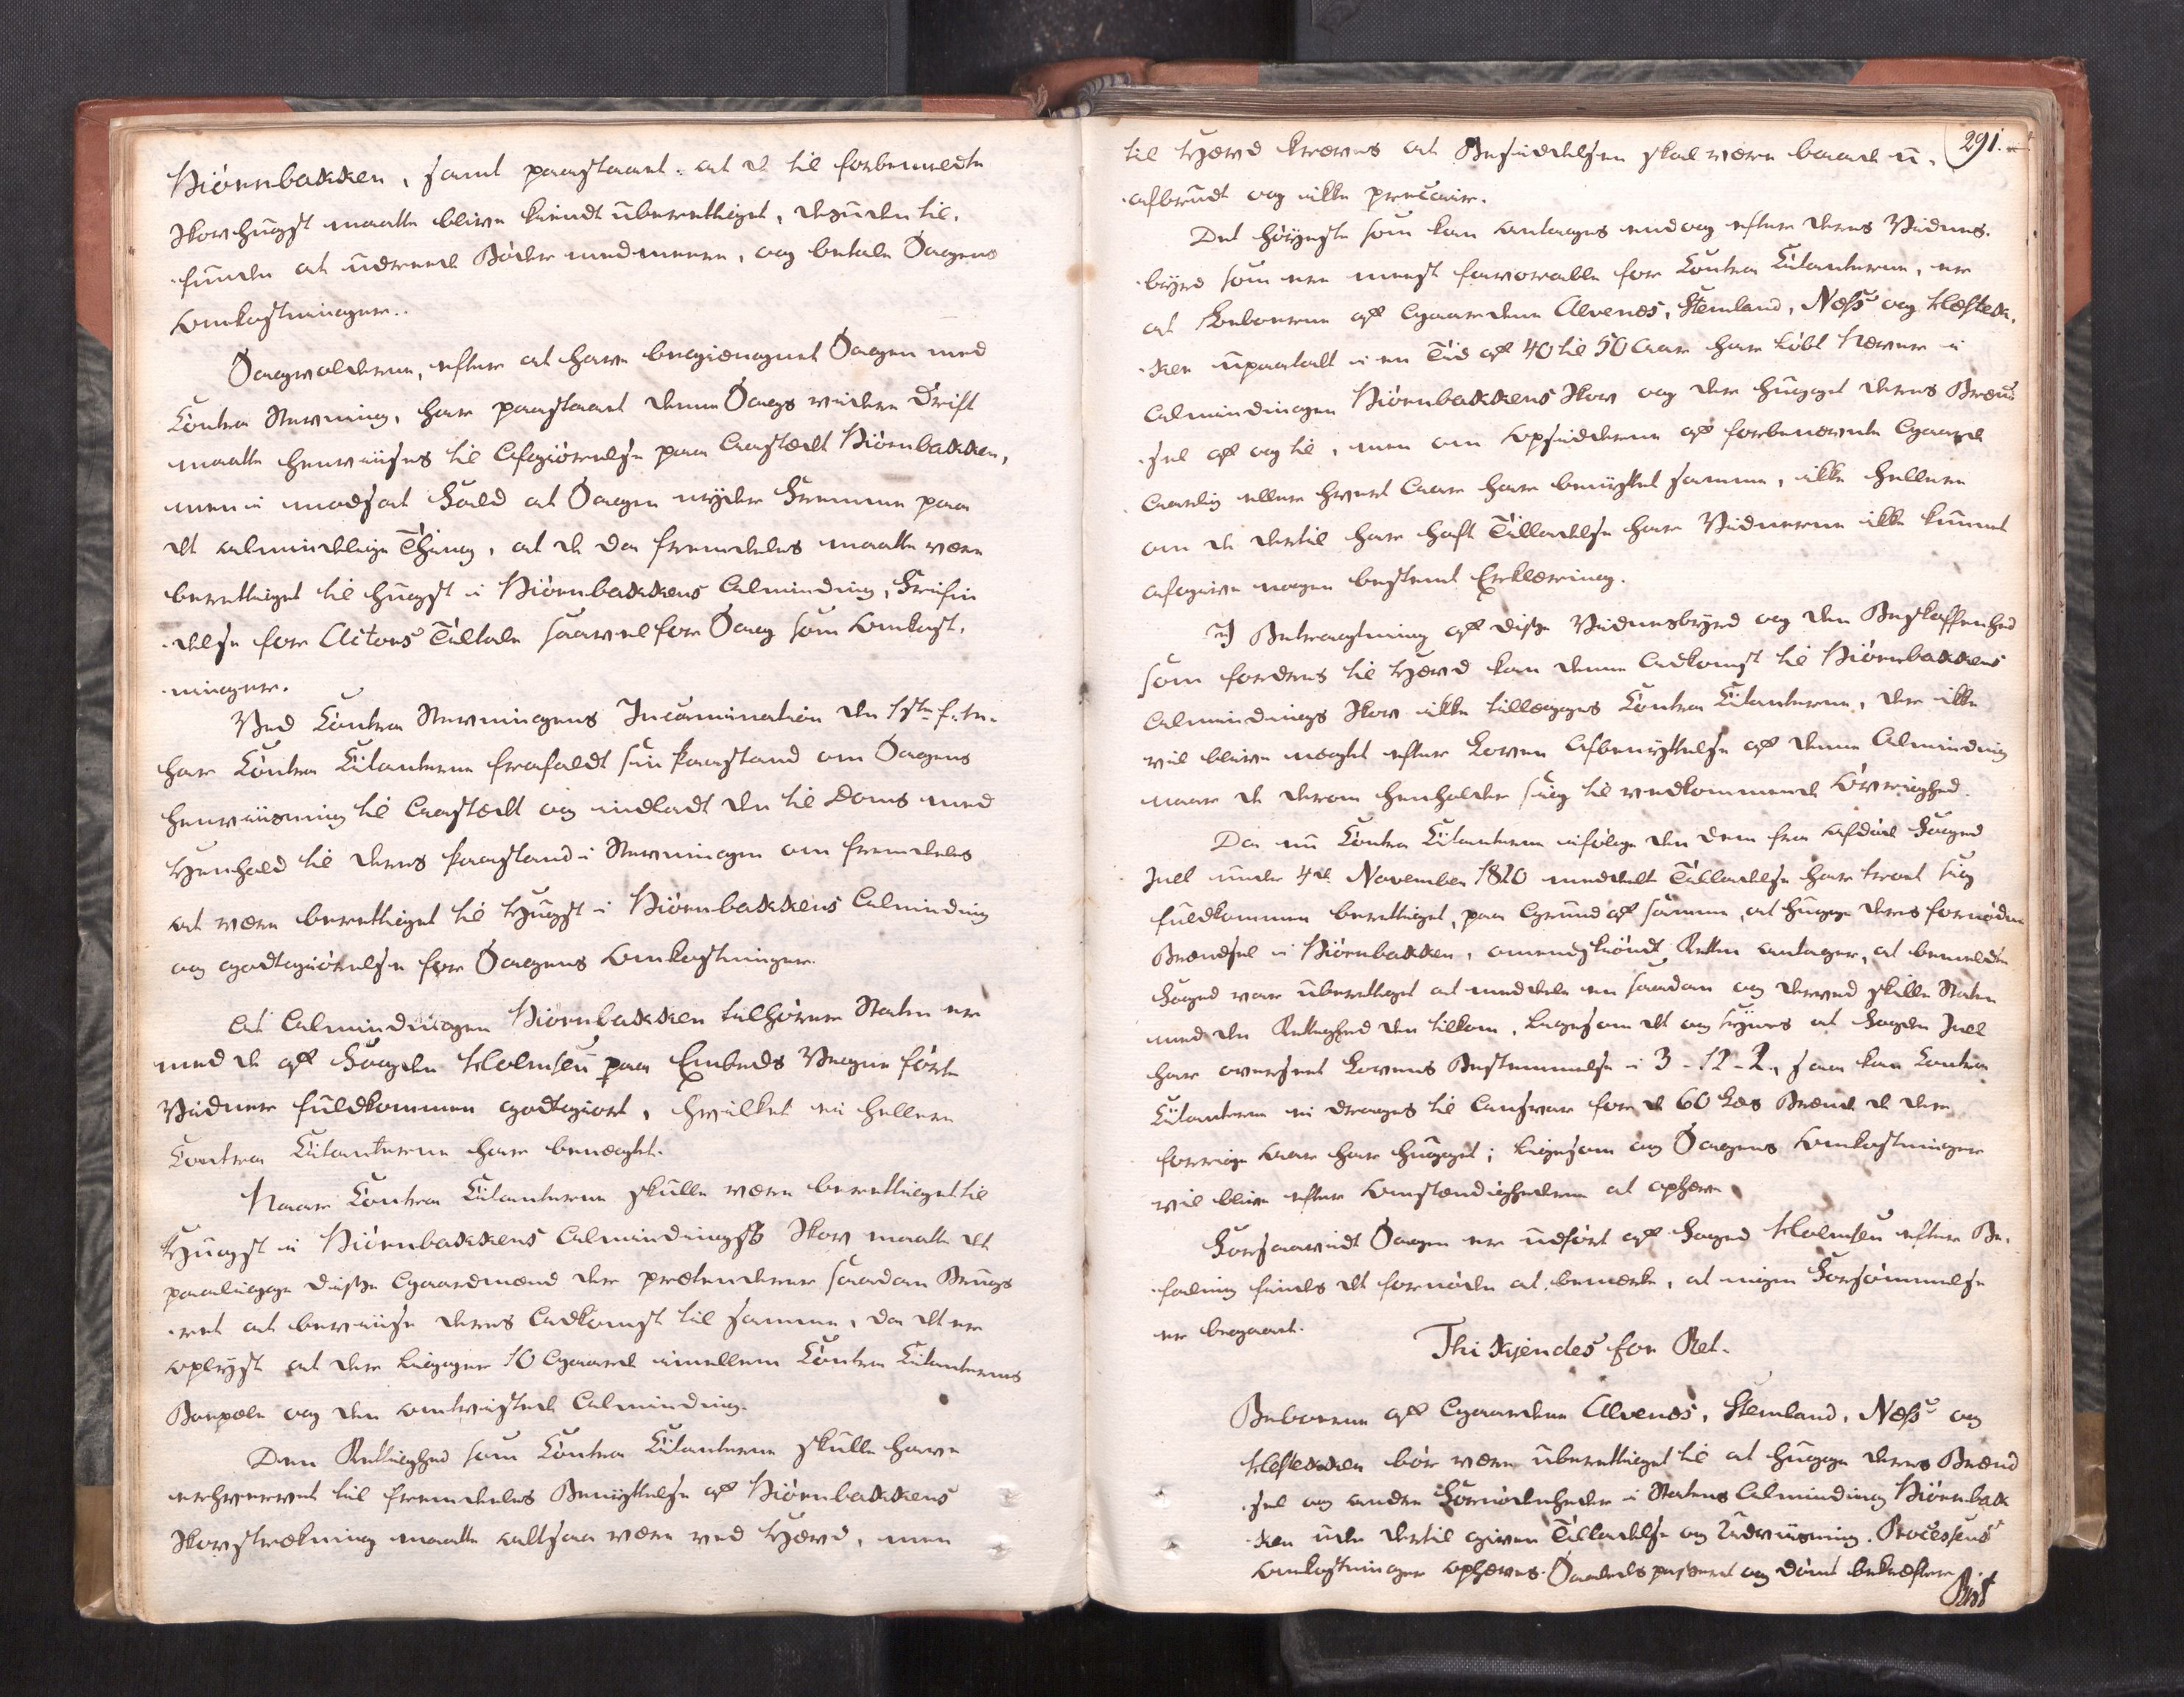 Biörnbakken, samt paastaaet at de til forbemeldte
Skovhugst maatte blive kiendt uberettiget, desuden til-
funden at udreede Böder med meere, og betale Sagens
Omkostninger.
Sagvolderne, efter at have begiegnet Sagen med
Contra Stevning, har paastaaet denne Sags videre Drift
maatte henviises til Afgiörelse paa Aastædet Biörnbakken,
men i modsat Fald at Sagen nyder Fremme paa
det almindelige Thing, at de da fremdeles maatte være
berettiget til hugst i Biörnbakkens Alminding, Friefin
delse for Actors Tiltale saavel for Sag som Omkost-
ninger.
Ved Contra Stevningens Incamination den 1ste f. M.
har Contra Citanterne frafaldt sin Paastand om Sagens
henviisning til Aastædet og indladt den til Doms med
Henhold til deres Paastand i Stevningen om fremdeles
at være berettiget til Hugst i Biörnbakkens Alminding
og godtgiörelse for Sagens Omkostninger.
At Almindingen Biörnbakken tilhörer Staten er
med de af Fogden Holmsen paa Embeds Vegne förte
Vidner fuldkommen godtgiort, hvilket ei heller
Contra Citanterne har benægtet.
Naar Contra Citanterne skulle være berettiget til
Hugst i Biörnbakkens Almindings Skov maatte det
paaligge disse Gaardmænd der prætenderer saadan Brugs
ret at beviise deres Adkomst til samme, da det er
oplyst at der ligger 10 Gaarde imellem Contra Citanternes
Boepæle og den omtvistede Alminding.
Den Rettighed som Contra Citanterne skulle have
erhvervet til fremdeles Benyttelse af Biörnbakkens
Skovstrækning maatte altsaa være ved Hævd, men
291.
til Hævd kræves at Besiddelsen skal være baade u-
afbrudt og ikke precair.
Det höyeste som kan antages endog efter deres Vidnes-
byrd som ere meest favorable for Contra Citanterne, er
at Beboerne af Gaardene Alvenes, Stemland, Næss og Hestek-
ken upaatalt i en Tid af 40 til 50 Aar har köbt Næver i
Almindingen Biörnbakkens Skov og der hugget deres Brænd
sel af og til, men om Opsidderne af forbenævnte Gaarde
Aarlig eller hvert Aar har benyttet samme, ikke heller
om de dertil har haft Tilladelse har Vidnerne ikke kunnet
afgive nogen bestemt Erklæring.
I Betragtning af disse Vidnesbyrd og den Beskaffenhed
som fordres til Hævd kan denne Adkomst til Biörnbakkens
Almindings Skov ikke tillægges Contra Citanterne, der ikke
vil blive nægtet efter Loven Afbenyttelse af denne Alminding
naar de derom henholder sig til vedkommende Övrighed.
Da nu Contra Citanterne ifölge den dem fra afdöde Foged
Juel under 4de November 1820 meddelte Tilladelse har troet sig
fuldkommen berettiget, paa Grund af samme, at hugge deres fornödne
Brændsel i Biörnbakken, omendskiöndt Retten antager, at bemeldte
Foged var uberettiget at meddele en saadan og derved skille Staten
med den Rettighed den tilkom, ligesom det og synes at Fogden Juel
har overseet Lovens Bestemmelse i 3-12-2, saa kan Contra
Citanterne ei drages til Ansvar for de 60 Læs Brænde de der
forrige Aar har hugget; ligesom og Sagens Omkostninger
vil blive efter Omstændighederne at ophæve.
Forsaavidt Sagen er udfört af Foged Holmsen efter Be-
faling findes det fornöden at bemerke, at ingen Forsömmelse
er begaaet.
Thi kjendes for Ret.
Beboerne af Gaardene Alvenes, Stemland, Næss og
Hestekken bör være uberettiget til at hugge deres Brænd
sel og andre Fornödenheder i Statens Alminding Biörnbak
ken uden dertil given Tilladelse og Udviisning. Processens
Omkostninger ophæves. Saaledes passeret og dömt bekræfter